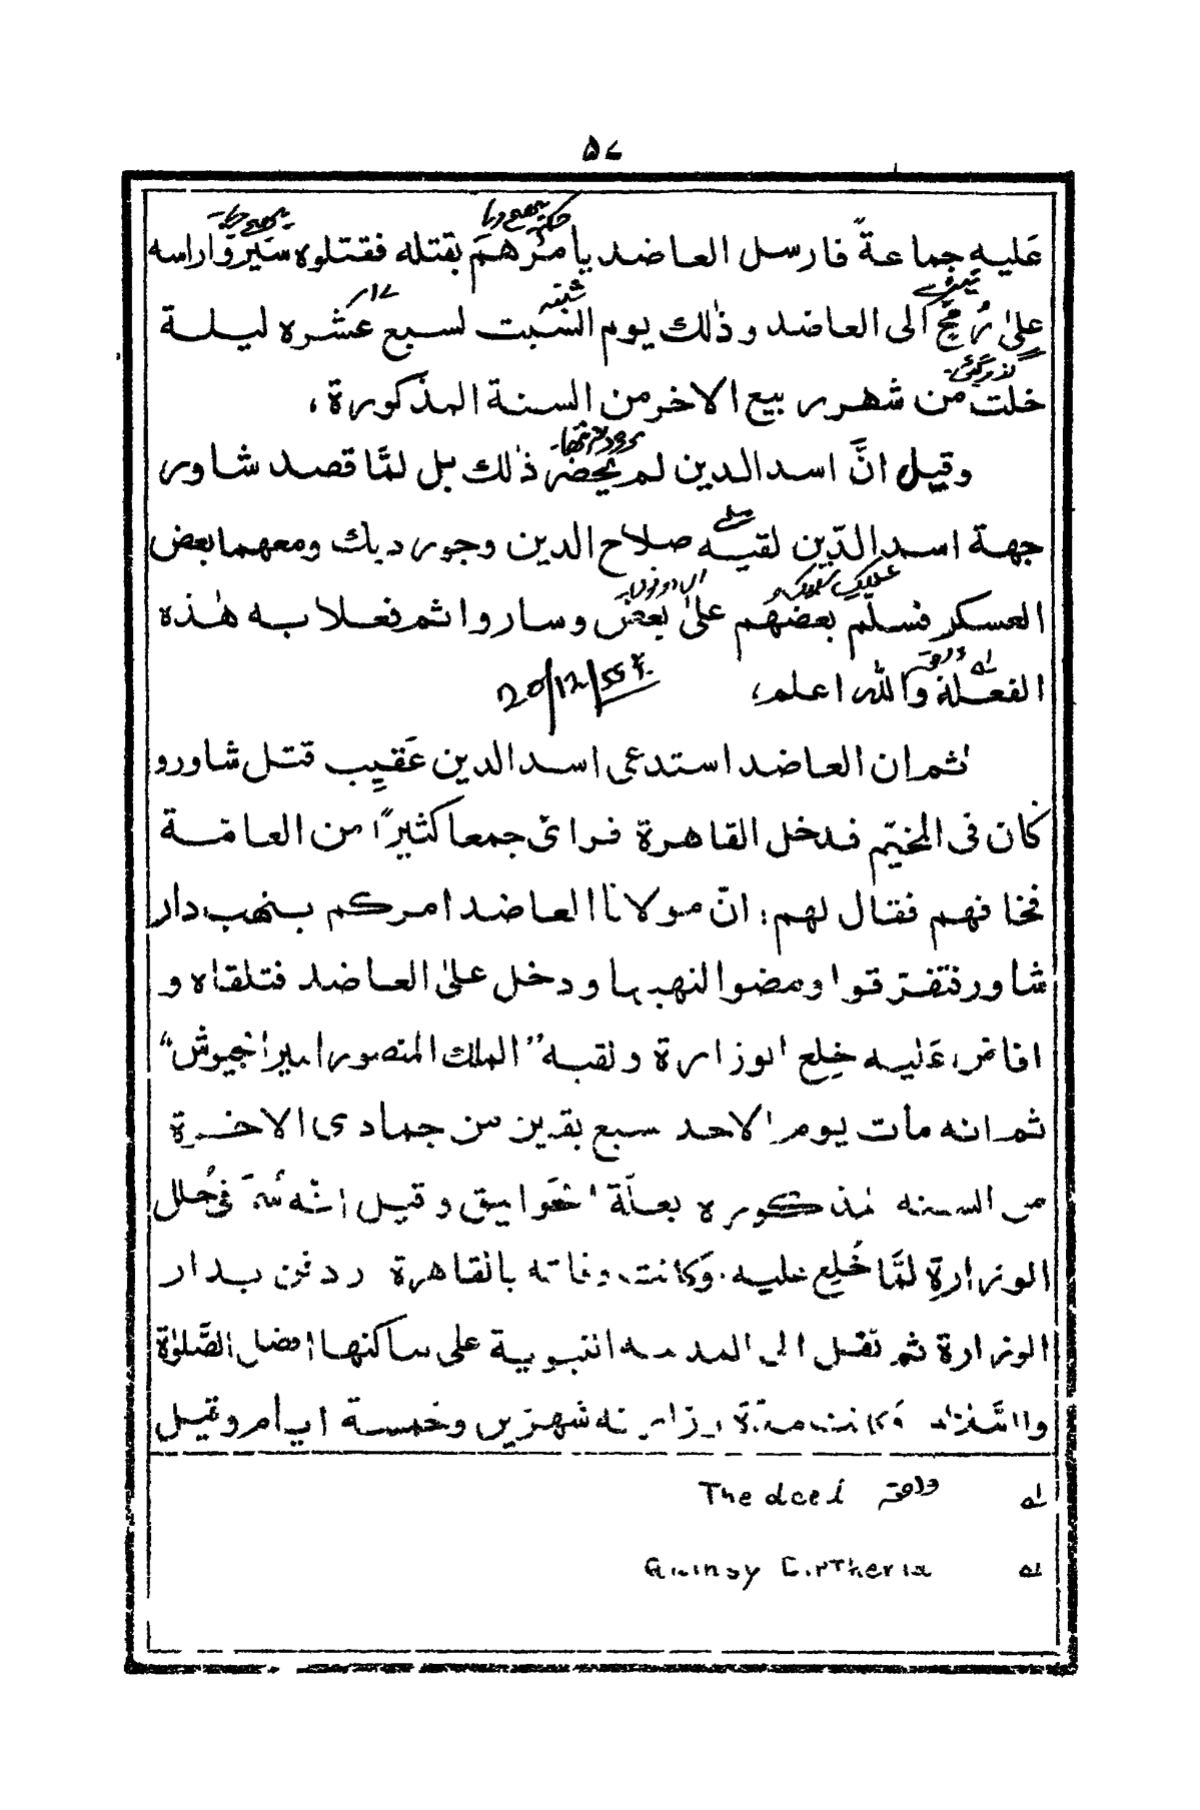 ۵۷
عَليه جماعةً فارسل العاضد يأمُرُهمَ بقتله فقتلوه سَيَّروا راسه
على رُمحٍ الى العاضد وذٰلك يوم السّبت لسبع عشره ليلة
خلت من شهر ربيع الاخر من السنة المذكورة،
وقيل انَّ اسد الدين لم يحضر ذٰلك بل لمَّا قصد شاور
جهة اسد الدّين لقيه صلاح الدين وجورديك ومعهما بعض
العسكر فسلّم بعضهم علىٰ بعض وساروا ثم فعلا به هٰذه
الفعلة والله اعلم،
20/12/55
ثم ان العاضد استدعى اسد الدين عَقِيب قتل شاور و
كان فى المخيّم فدخل القاهرة فرائ جمعا كثيرًا من العامّة
فخافهم فقال لهم: انّ مولانا العاضد امركم بنهب دار
شاور فتفرّقوا ومضوا لنهبها ودخل علىٰ العاضد فتلقاه و
افاض عَليه خِلع الوزارة ولقبه "الملك المنصور امير الجيوش"
ثم انه مات يوم الاحد سبع بقين من جمادى الاخرة
من السنه المذكوره بعلّة الخوانيق وقيل انّه سُمّ فى حُلل
الوزارةِ لمَّا خُلع عليه. وَكانت وفاته بالقاهرة ودفن بدار
الوزارة ثم نقل الى المدينه النبوية على ساكنها افضل الصَّلوٰة
والسَّلام وكانت مدّة وزارته شهرين وخمسة ايام وقيل
له والحقہ The deed
له Quinsy Diptheria